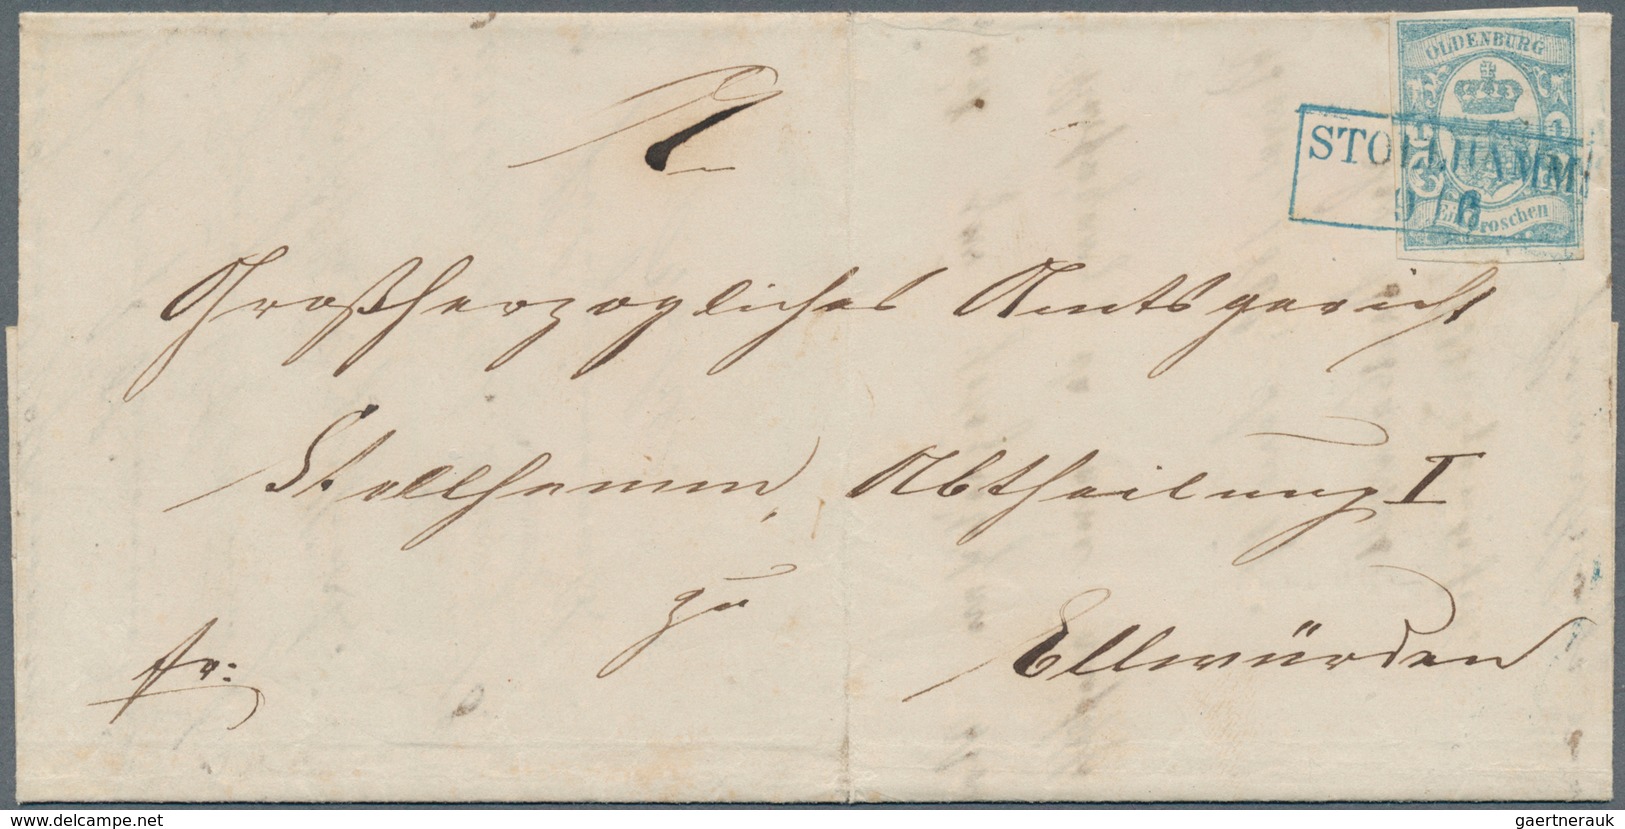 An
OLDENBURG
1 1
Ein Groschen
STOLLHAMM
9/6
Großherzogliches Amtsgericht
Stollhamm, Abtheilung I
zu
fr: Ellwürden
delcampe.net
gaertnerauk